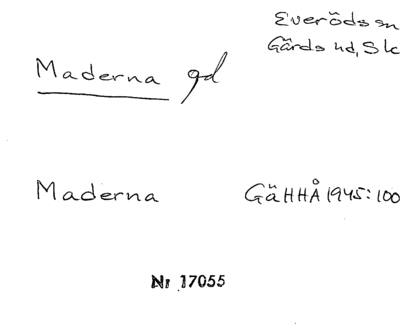 Everöds sn
Gärds hd, Sk
Maderna gd
Maderna GäHHÅ 1945:100
Nr 17055